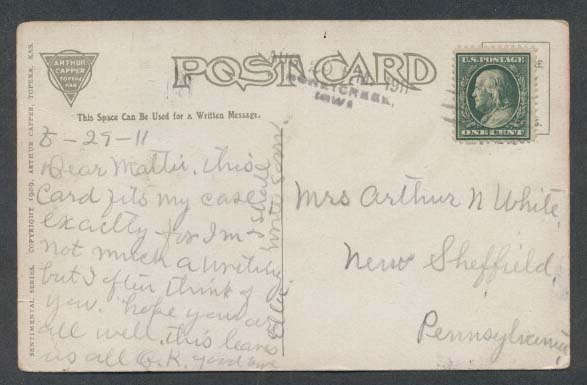 ARTHUR
CAPPER
TOPEKA
KAN.
POST CARD
1911
HONEYCREEK,
IOWA
U.S. POSTAGE
ONE CENT
This Space Can Be Used for a Written Message.
8-29-11
Dear Mattie, this
Card fits my case
exactly for I'm
not much a writing
but I often think of
you. hope you are
all well, this leaves
us all O.K. good bye
I shall write soon
Mrs Arthur N White,
New Sheffield,
Pennsylvania,
SENTIMENTAL SERIES. COPYRIGHT 1909, ARTHUR CAPPER, TOPEKA, KAS.